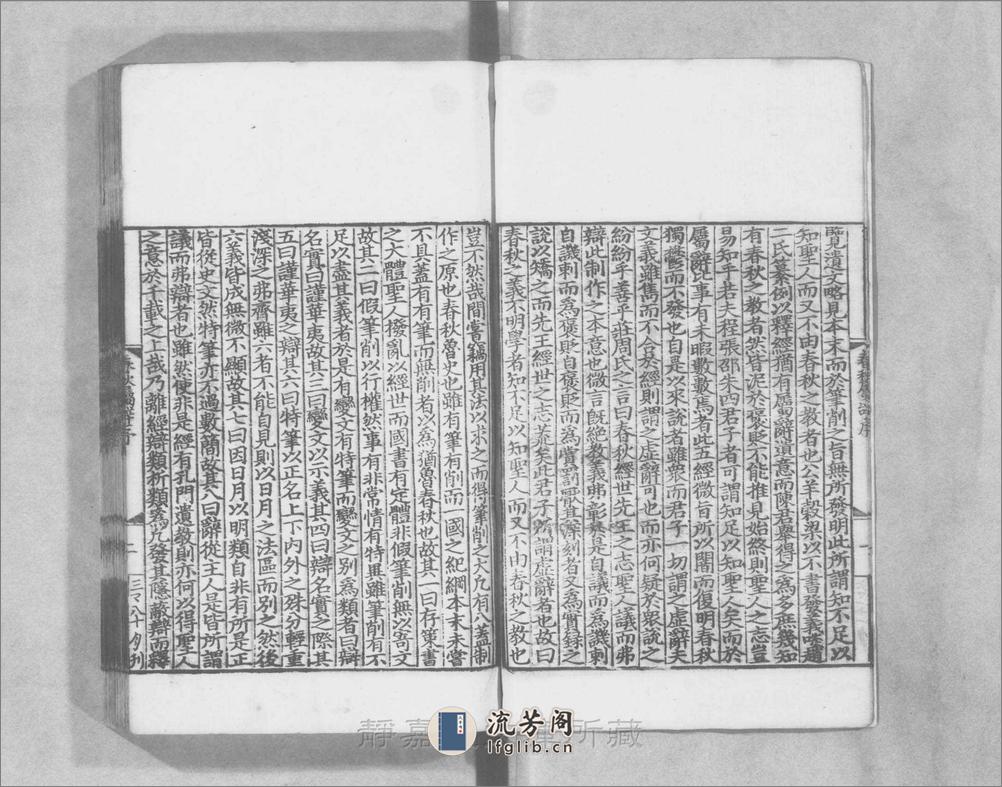 覽遺文略見本末而於筆削之旨無所發明此所謂知不足以
知聖人而又不由春秋之教者也公羊穀梁以不書發義啖趙
二氏纂例以釋經猶有屬辭遺意而陳君舉得之為多庶幾知
有春秋之教者然皆泥於褒貶不能推見始終則聖人之志豈
易知乎若夫程張邵朱四君子者可謂知足以知聖人矣而於
屬辭比事有未暇數數焉者此五經微旨所以闇而復明春秋
獨鬱而不發也自是以來說者雖衆而君子一切謂之虛辭夫
文義雖雋而不合於經則謂之虛辭可也而亦何疑於衆說之
紛紛乎善乎莊周氏之言曰春秋經世先王之志聖人議而弗
辯此制作之本意也微言既絕教義弗彰於是自議而為譏刺
自譏刺而為褒貶自褒貶而為賞罰厭其深刻者又為實錄之
說以矯之而先王經世之志荒矣此君子所謂虛辭者也故曰
春秋之義不明學者知不足以知聖人而又不由春秋之教也
豈不然哉間嘗竊用其法以求之而得筆削之大凡有八蓋制
作之原也春秋魯史也雖有筆有削而一國之紀綱本末未嘗
不具蓋有有筆而無削者以為猶魯春秋也故其一曰存策書
之大體聖人撥亂以經世而國書有定體非假筆削無以寄文
故其二曰假筆削以行權然事有非常情有特異雖筆削有不
足以盡其義者於是有變文有特筆而變文之別為類者曰辯
名實曰謹華夷故其三曰變文以示義其四曰辯名實之際其
五曰謹華夷之辯其六曰特筆以正名上下內外之殊分輕重
淺深之弗齊雖六者不能自見則以日月之法區而別之然後
六義皆成無微不顯故其七曰因日月以明類自非有所是正
皆從史文然特筆亦不過數簡故其八曰辭從主人是皆所謂
議而弗辯者也雖然使非是經有孔門遺教則亦何以得聖人
之意於千載之上哉乃離經辯類析類為凡發其隱蔽辯而釋
靜嘉 所藏
流芳阁
lfglib.cn